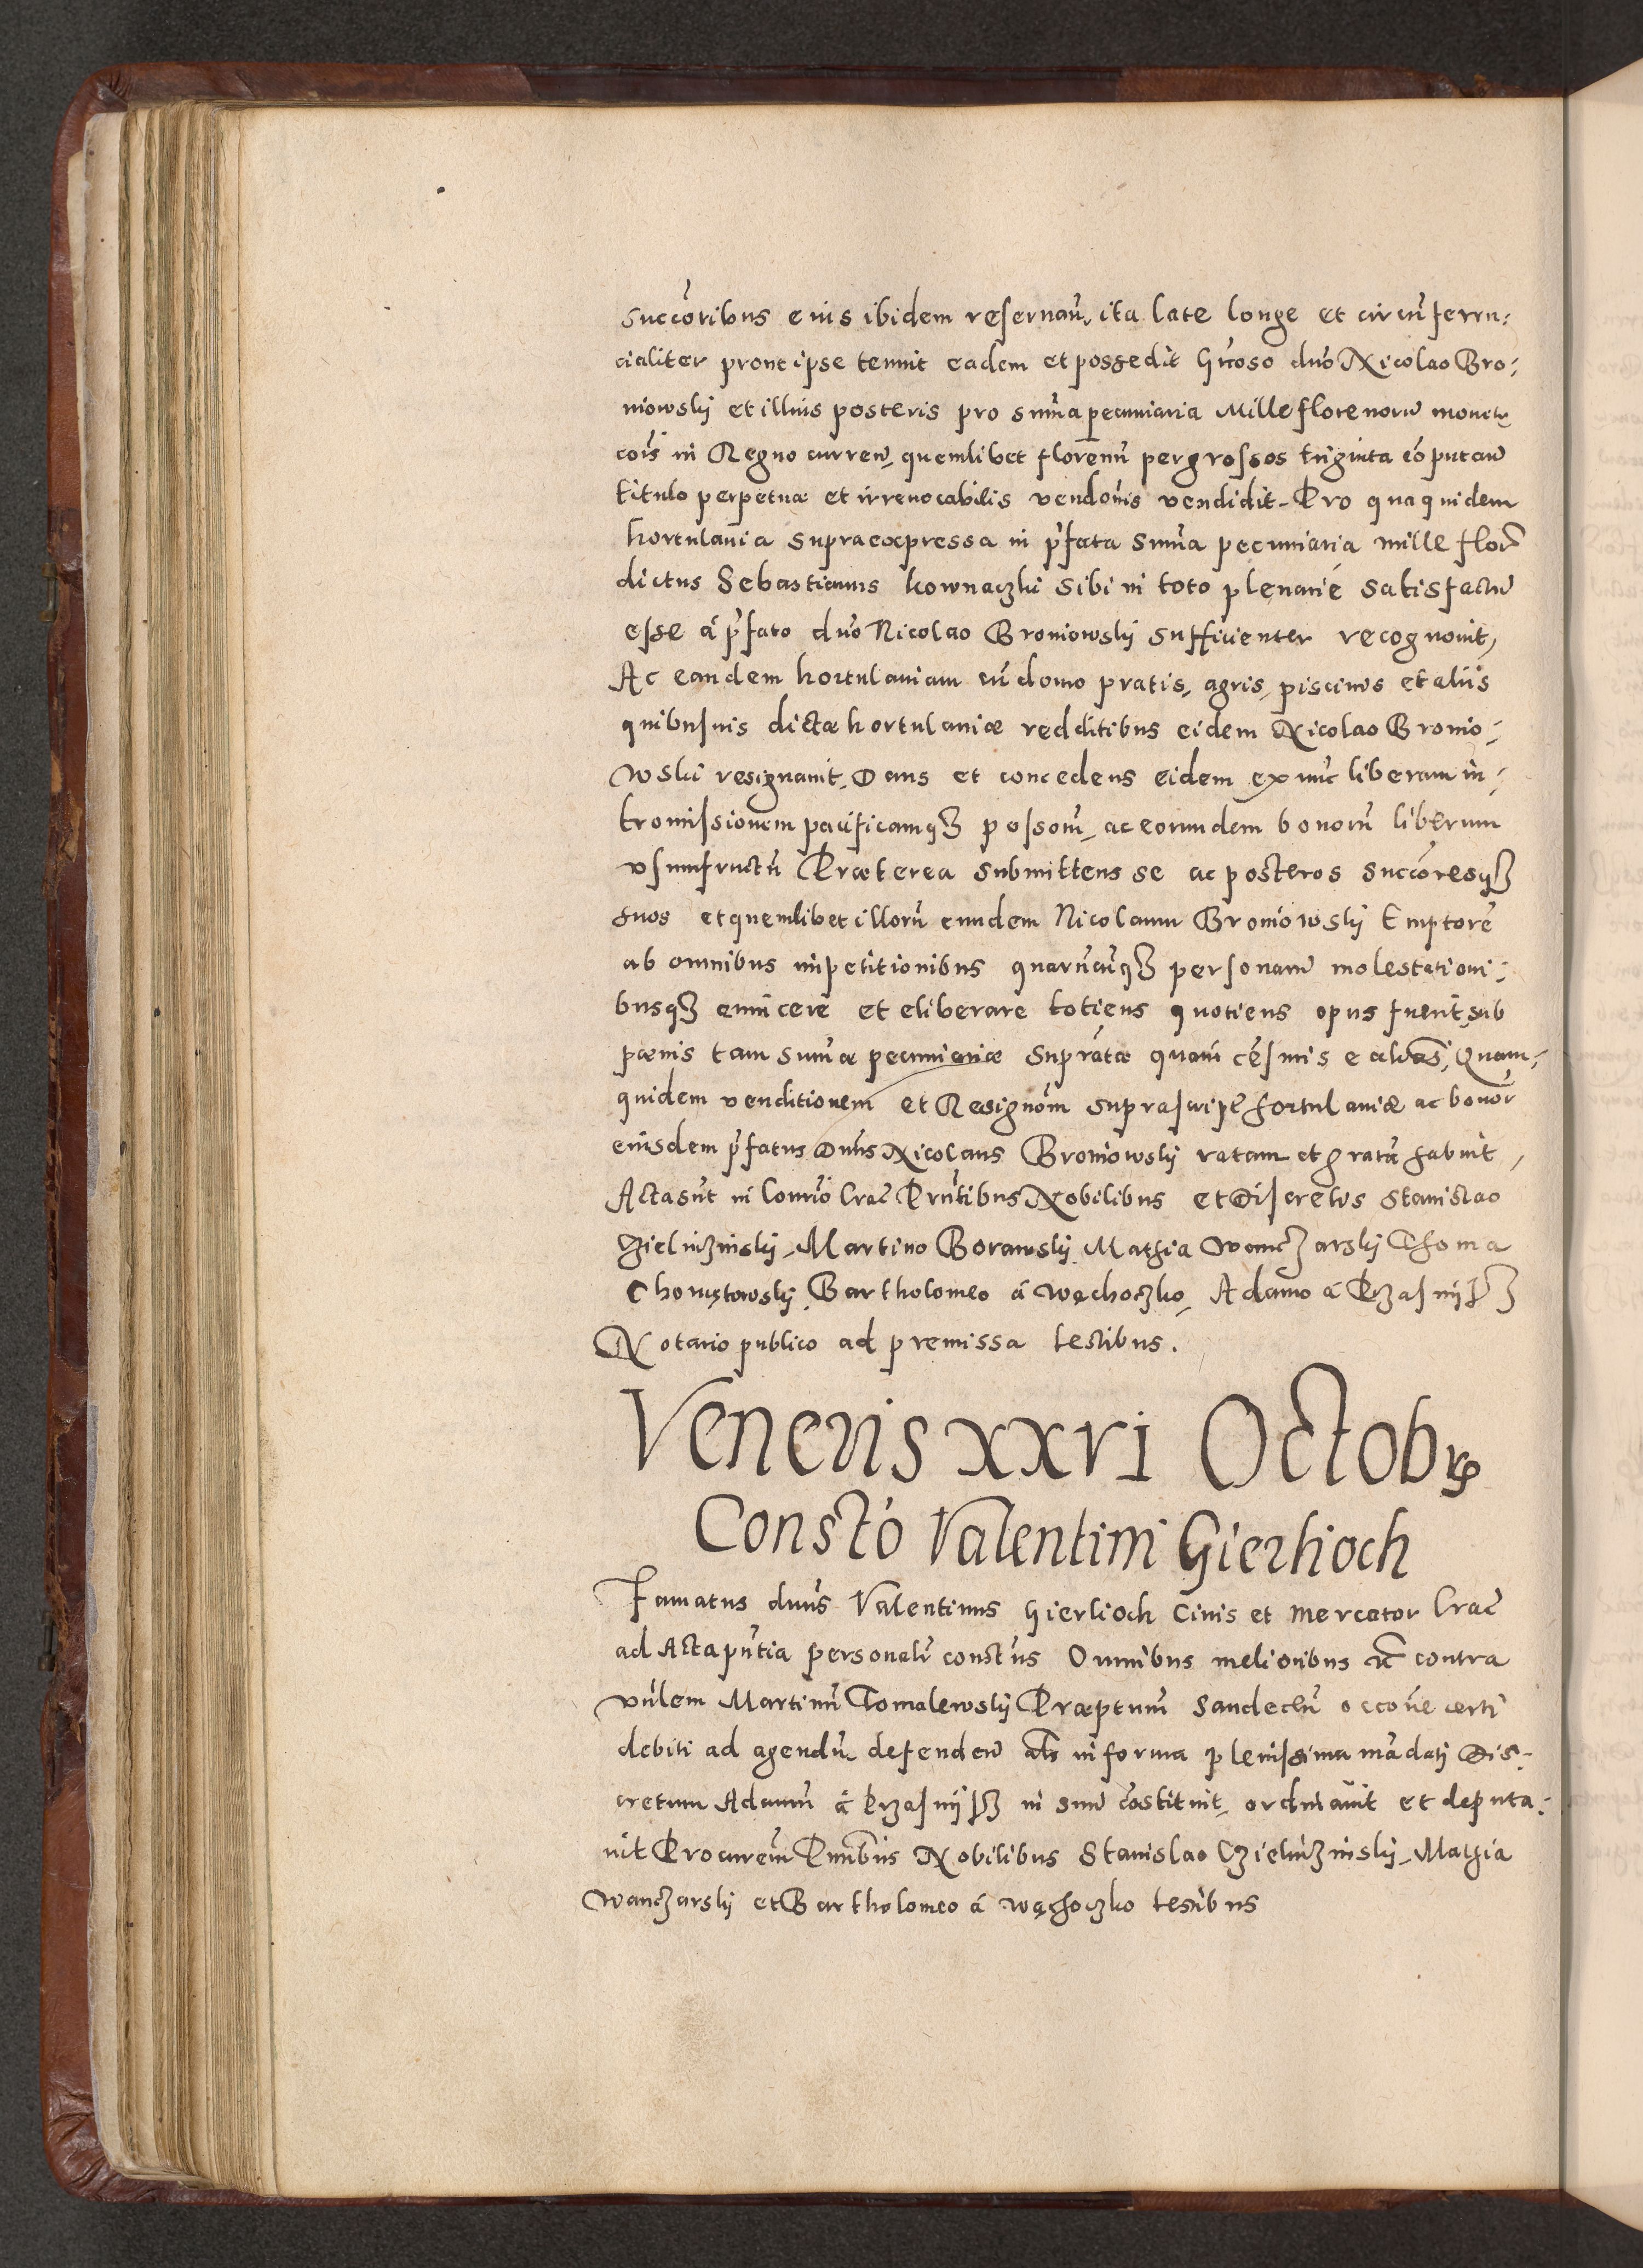 succoribus eius ibidem reseruan̄, ita late longe et circūferen:
cialiter prout ipse tenuit eadem et possedit Gn̄oso dn̄o Nicolao Bro:
niowskÿ et illius posteris pro sum̄a pecuniaria Mille florenorū monetę
cōis in Regno curren̄, quemlibet florenū per grossos triginta cōputan̄
titulo perpetuæ et irreuocabilis vendōnis vendidit. Pro qua quidem
hortulania supraexpressa in p̄fata sum̄a pecuniaria mille flor̄
dictus Sebastianus kownaczki sibi in toto plenarié satisfactū
esse á p̄fato dn̄o Nicolao Broniowskÿ sufficienter recognouit,
Ac eandem hortulaniam cū domo pratis, agris, piscinis et aliis
quibusuis dictæ hortulaniæ redditibus eidem Nicolao Bronio:
wski resignauit, Dans et concedens eidem ex nūc liberam in:
tromissionem pacificamqꝫ possom̄, ac eorundem bonorū liberum
vsumfructū Præterea submittens se ac posteros succoresqꝫ
suos et quemlibet illorū eundem Nicolaum Broniowskÿ Emptorē
ab omnibus impetitionibus quarūcūqꝫ personarū molestationi:
busqꝫ euincere et eliberare totiens quotiens opus fuerit, sub
pænis tam sum̄æ pecuniariæ suprātæ quam cēsuris ecclicas̄, Quam:
quidem venditionem et Resignōm suprascriptæ hortulaniæ ac bonor̄
eiusdem p̄fatus Dn̄s Nicolaus Broniowskÿ ratam et gratā habuit,
Acta sūt in Conuō Crac̄ Prn̄tibus Nobilibus et Discretis Stanislao
Zielinzinskÿ, Martino Borawskÿ, Mathia Wanczarskÿ Thoma
Chomętowskÿ, Bartholomeo á Wąchoczko, Adamo á Przasnijsz
Notario publico ad premissa testibus.
Veneris xxvi Octobrꝭ
Constō Valentini Gierlioch
Famatus dn̄s Valentinus Gierlioch Ciuis et Mercator Crac̄
ad Acta pn̄tia personalr̄ conctūs Omnibus melioribus ꝛc̄ contra
vn̄lem Martinū Tomalewskÿ Præptum̄ Sandecēn̄ occōne certi
debiti ad agendū defenden̄ als̄ in forma plenissima mādati Dis:
cretum Adamū á Przasnijsz in suū cōstituit, ordinauit et deputa:
uit Procurem̄ Prn̄tibus Nobilibus Stanislao Czielinzinskÿ, Mathia
Wanczarskÿ et Bartholomeo á Wąchoczko testibus